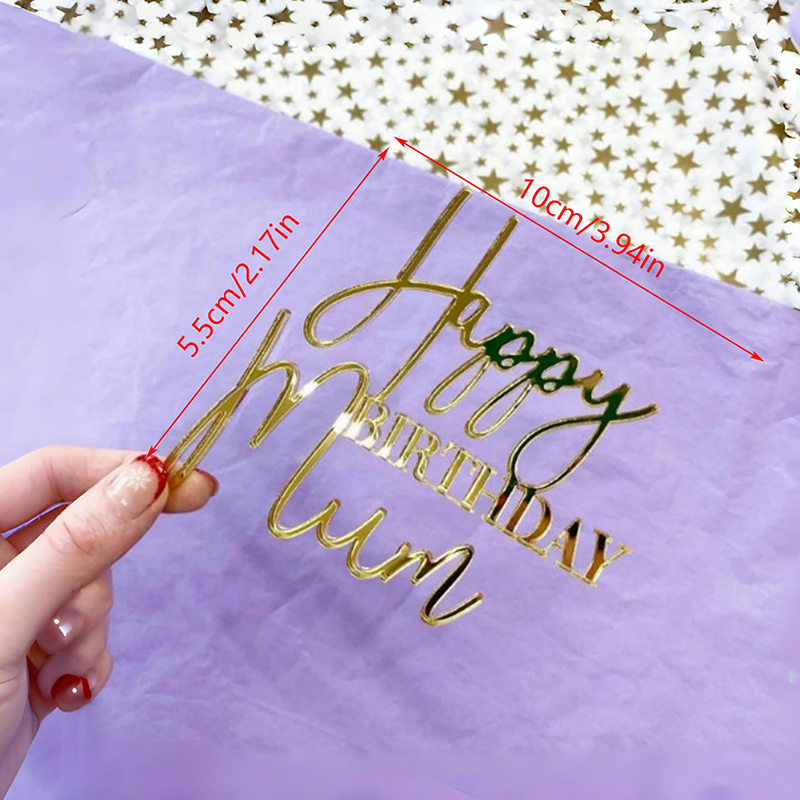 10cm/3.94in
5.5cm/2.17in
Happy
BIRTHDAY
Mum